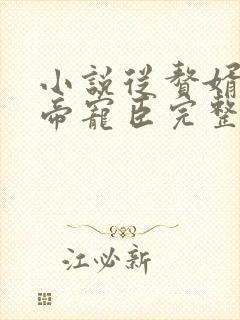 小説從贅婿
帝寵臣完整
江必新